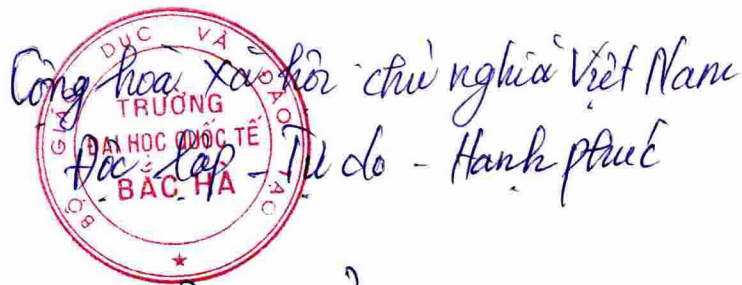 Cộng hoà xã hội chủ nghĩa Việt Nam
Độc lập - Tự do - Hạnh phúc
BỘ GIÁO DỤC VÀ ĐÀO TẠO
TRƯỜNG
ĐẠI HỌC QUỐC TẾ
BẮC HÀ